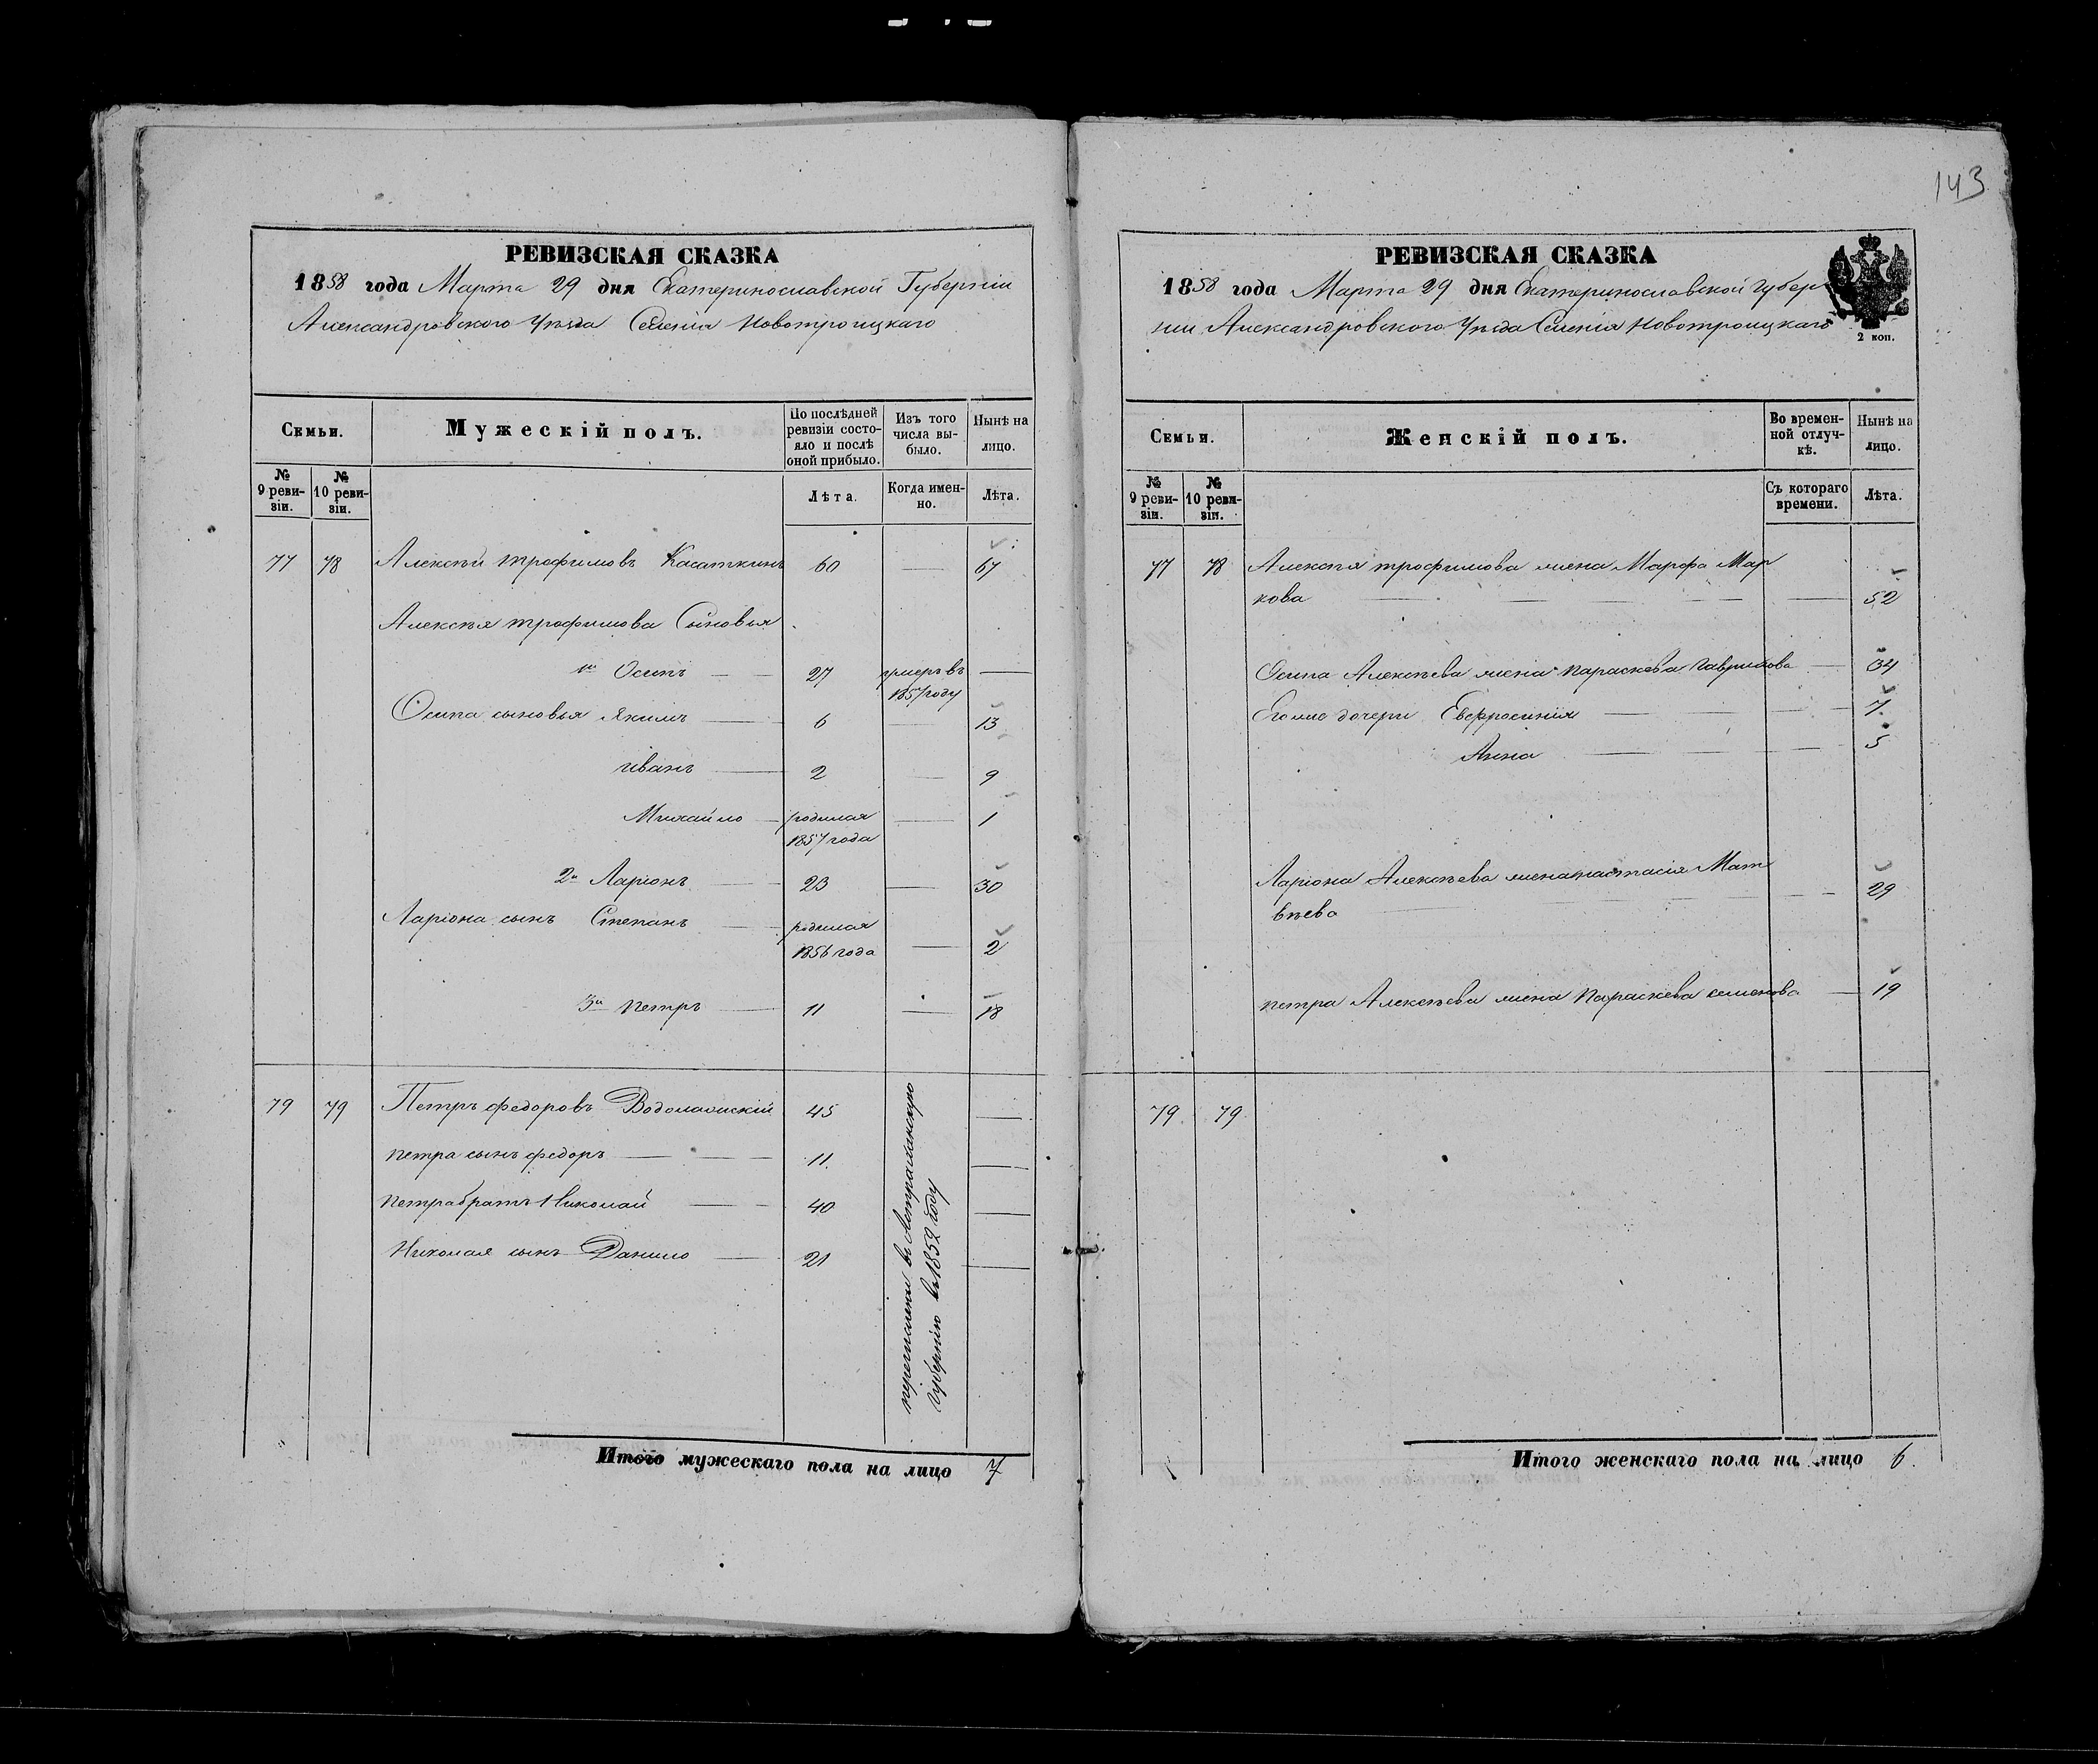 143
РЕВИЗСКАЯ СКАЗКА
1858 года Марта 29 дня Екатеринославской Губерніи
Александровского Уѣзда Селенія Новотроицкаго
Семьи.
Мужескій полъ.
По послѣдней ревизіи состояло и послѣ оной прибыло.
Изъ того числа выбыло.
Нынѣ на лицо.
№ 9 ревизіи.
№ 10 ревизіи.
Лѣта.
Когда именно.
Лѣта.
77 78 Алексѣй трофимовъ Касаткинъ 60 — 67
Алексѣя трофимова Сыновья
1й Осипъ — — 27 умеръ въ —
1857 году
Осипа сыновья Якимъ — 6 — 13
иванъ — 2 — 9
Михайло — родился — 1
1857 года
2й Ларіонъ — 23 — 30
Ларіона сынъ Степанъ — родился
1856 года — 2
3й петръ — 11 — 18
79 79 Петръ федоровъ 45 —
петра сынъ федоръ — — — 11. —
петра братъ Николай — — 40 —
Николая сынъ Данило — 21 —
перечислены въ Астраханскую
Губернію въ 1852 году
Итого мужескаго пола на лицо 7
РЕВИЗСКАЯ СКАЗКА
1858 года Марта 29 дня Екатеринославской Губер
ніи Александровского Уѣзда Селенія Новотроицкаго
2 коп.
Семьи.
Женскій полъ.
Во временной отлучкѣ.
Нынѣ на лицо.
№ 9 ревизіи.
№ 10 ревизіи.
Съ котораго времени.
Лѣта.
77 78 Алексѣя трофимова жена Марфа Мар
кова — — — — — 52
Осипа Алексѣева жена параскева Гаврилова — 34
Его же дочери Евфросинія — — — 7.
Анна — — — 5
Ларіона Алексѣева жена настасія Мат
вѣева — — — 29
петра Алексѣева жена параскева семенова — 19
79 79.
Итого женскаго пола на лицо 6.